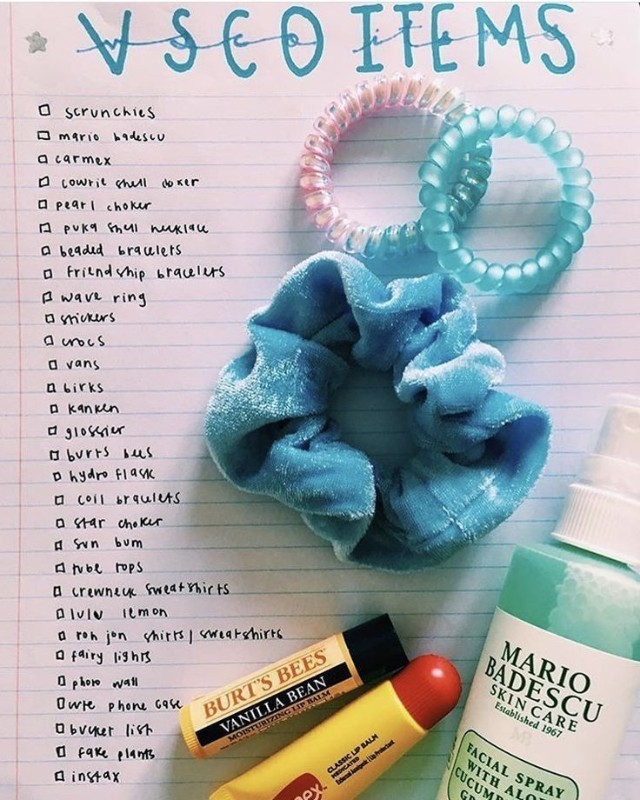 VSCO ITEMS
vsco items
scrunchies
mario badescu
carmex
cowrie shell
pearl choker
puka shell necklace
beaded bracelets
friendship bracelets
wave ring
stickers
crocs
vans
birks
kanken
glossier
burts bees
hydro flask
coil bracelets
star choker
sun bum
tube tops
crewneck sweatshirts
lulu lemon
ron jon shirts/sweatshirts
fairy lights
photo wall
phone case
bucket list
fake plants
instax
BURT'S BEES
VANILLA BEAN
MOISTURIZING LIP BALM
CLASSIC LIP BALM
MEDICATED
External Analgesic | Lip Protectant
mex
MARIO
BADESCU
SKIN CARE
Established 1967
FACIAL SPRAY
WITH ALO
CUCUM
GR